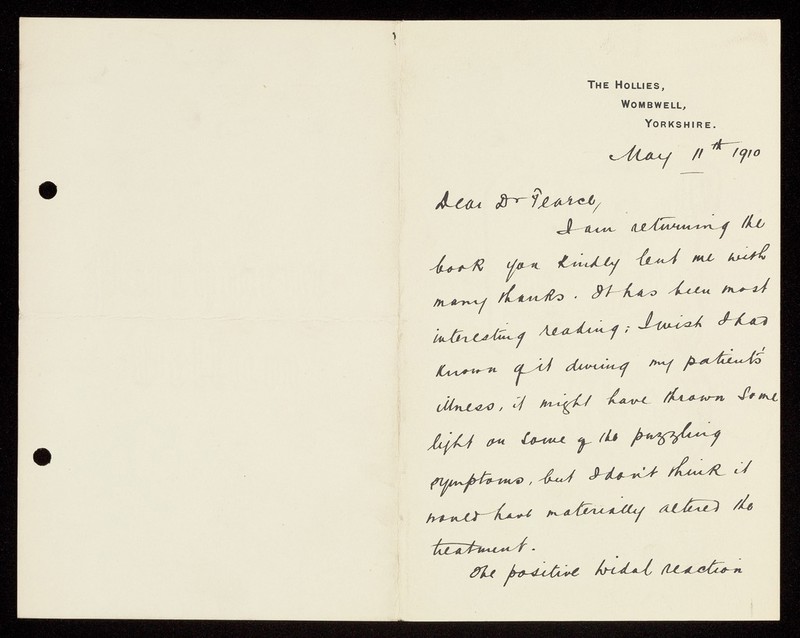 THE HOLLIES,
WOMBWELL,
YORKSHIRE.
May 11th 1910
Dear Dr Pearce,
I am returning the
book you kindly lent me with
many thanks. It has been most
interesting reading; I wish I had
known of it during my patient's
illness, it might have thrown some
light on some of the puzzling
symptoms, but I don't think it
would have materially altered the
treatment.
The positive Widal reaction